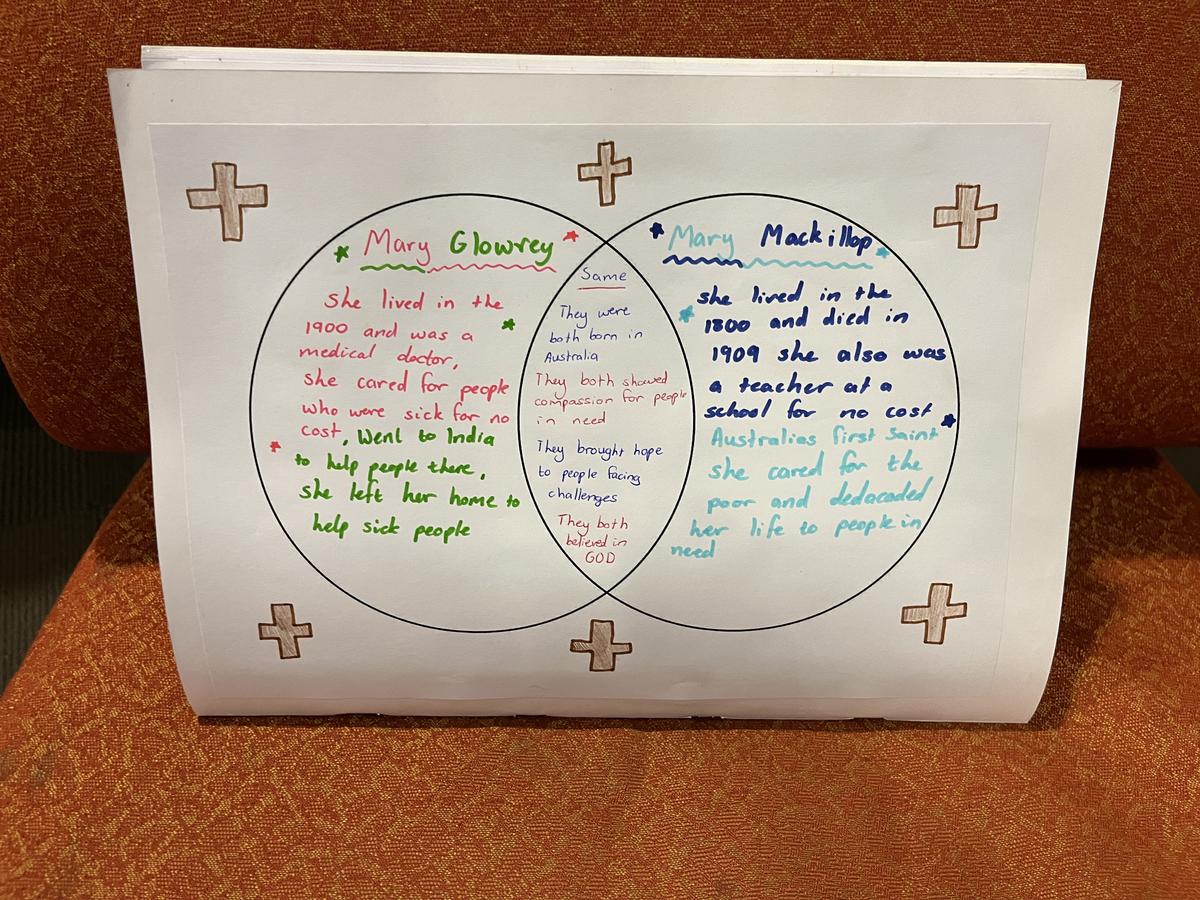 Mary Glowrey
she lived in the
1900 and was a
medical doctor,
she cared for people
who were sick for no
cost, Went to India
to help people there,
she left her home to
help sick people
Same
They were
both born in
Australia
They both showed
compassion for people
in need
They brought hope
to people facing
challenges
They both
believed in
GOD
Mary Mackillop
she lived in the
1800 and died in
1909 she also was
a teacher at a
school for no cost
Australias first Saint
she cared for the
poor and dedacaded
her life to people in
need